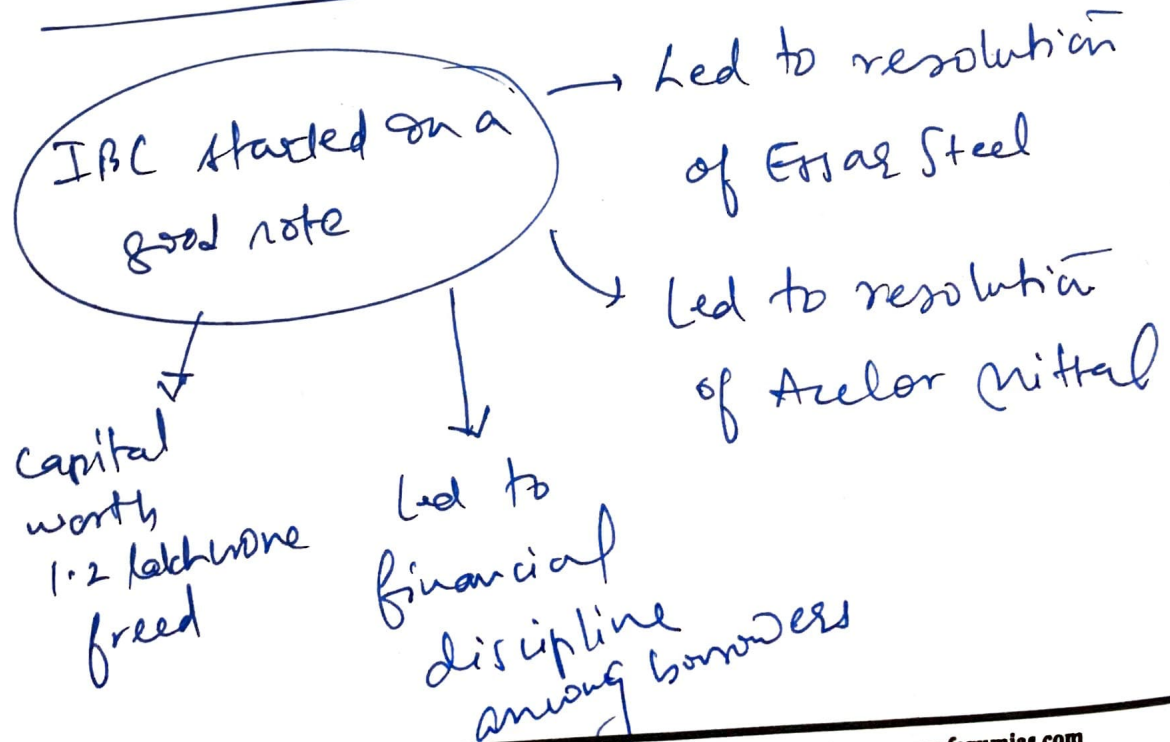 IBC started on a
good note
→ Led to resolution
of Essar Steel
Led to resolution
of Arcelor Mittal
Capital
worth
1.2 lakh crore
freed
Led to
financial
discipline
among borrowers